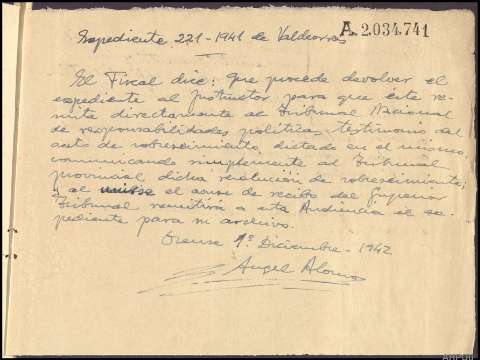 A 2.034.741
Expediente 221-1941 de Valdeorras
El Fiscal dice: que procede devolver el
expediente al Instructor para que éste re-
mita directamente al Tribunal Nacional
de responsabilidades politicas, testimonio del
auto de sobreseimiento, dictado en el mismo,
comunicando simplemente al Tribunal
provincial dicha resolución de sobreseimiento;
y al el acuse de recibo del Superior
Tribunal remitirá a esta Audiencia el ex-
pediente para su archivo.
Orense 1º Diciembre - 1942
Angel Alonso